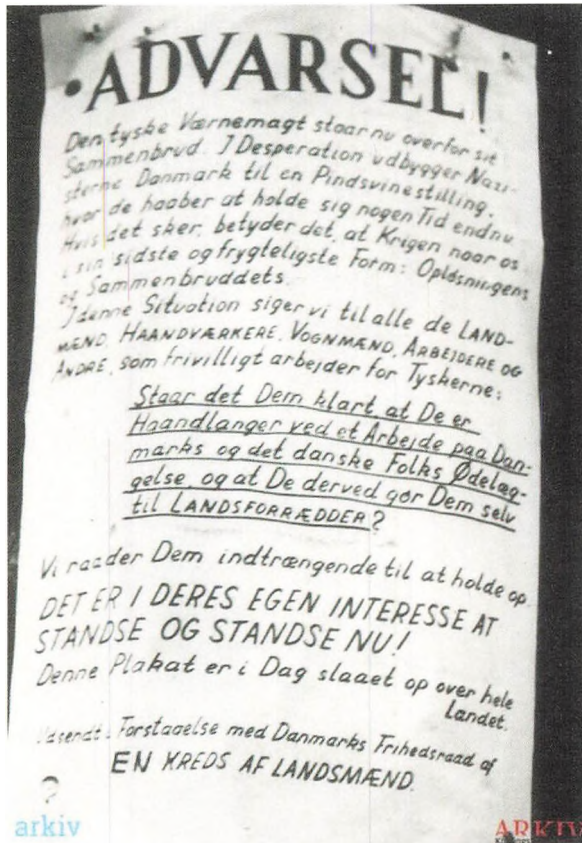 ·ADVARSEL!
Den tyske Værnemagt staar nu overfor sit
Sammenbrud. I Desperation udbygger Nazi-
sterne Danmark til en Pindsvinestilling,
hvor de haaber at holde sig nogen Tid endnu.
Hvis det sker, betyder det, at Krigen naar os
i sin sidste og frygteligste Form: Opløsningens
og Sammenbruddets.
I denne Situation siger vi til alle de LAND-
MÆND, HAANDVÆRKERE, VOGNMÆND, ARBEJDERE OG
ANDRE, som frivilligt arbejder for Tyskerne:
Staar det Dem klart at De er
Haandlanger ved et Arbejde paa Dan-
marks og det danske Folks Ødelæg-
gelse, og at De derved gør Dem selv
til LANDSFORRÆDDER?
Vi raader Dem indtrængende til at holde op.
DET ER I DERES EGEN INTERESSE AT
STANDSE OG STANDSE NU!
Denne Plakat er i Dag slaaet op over hele
Landet.
Udsendt i Forstaaelse med Danmarks Frihedsraad af
EN KREDS AF LANDSMÆND.
?
arkiv
ARKIV